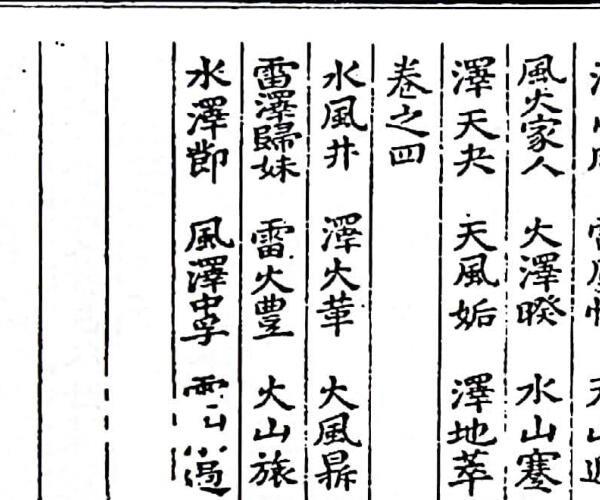 風火家人 火澤睽 水山蹇
澤天夬 天風姤 澤地萃
卷之四
水風井 澤火革 火風鼎
雷澤歸妹 雷火豐 火山旅
水澤節 風澤中孚 雷山小過